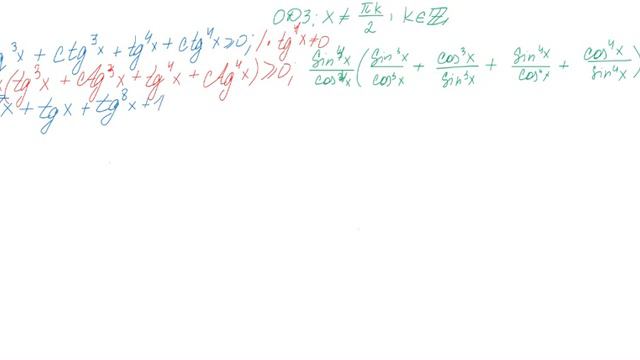 ОДЗ: x ≠ πk/2, k∈ℤ
g³x + ctg³x + tg⁴x + ctg⁴x ≥ 0; | · tg⁴x ≠ 0
x(tg³x + ctg³x + tg⁴x + ctg⁴x) ≥ 0; sin⁴x/cos⁴x (sin³x/cos³x + cos³x/sin³x + sin⁴x/cos⁴x + cos⁴x/sin⁴x)
x + tgx + tg⁸x + 1